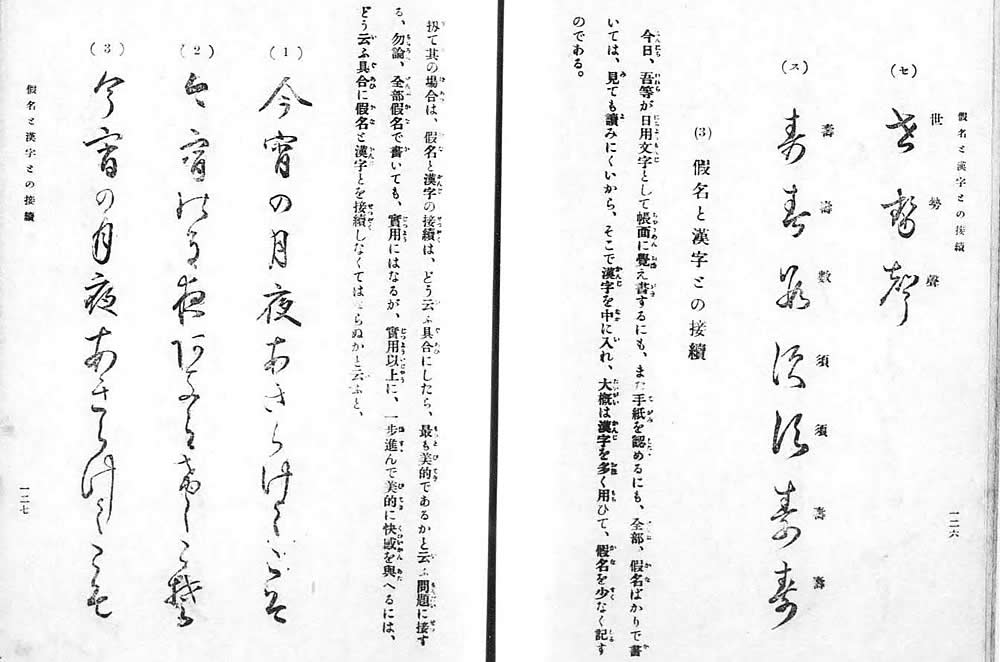 假名と漢字との接續
(セ)
世 勢 聲
世勢聲
(ス)
壽 壽 數 須 須 壽 壽
壽壽數須須壽壽
(3) 假名と漢字との接續
今日、吾等が日用文字として帳面に覺え書するにも、また手紙を認めるにも、全部、假名ばかりで書
いては、見ても讀みにくいから、そこで漢字を中に入れ、大概は漢字を多く用ひて、假名を少なく記す
のである。
一二六
扨て其の場合は、假名と漢字の接續は、どう云ふ具合にしたら、最も美的であるかと云ふ問題に接す
る、勿論、全部假名で書いても、實用にはなるが、實用以上に、一步進んで美的に快感を與へるには、
どう云ふ具合に假名と漢字とを接續しなくては らぬかと云ふと、
(1)
今宵の月夜あきらけくこそ
(2)
今宵
(3)
今宵の月夜あきらけくこそ
假名と漢字との接續
一二七